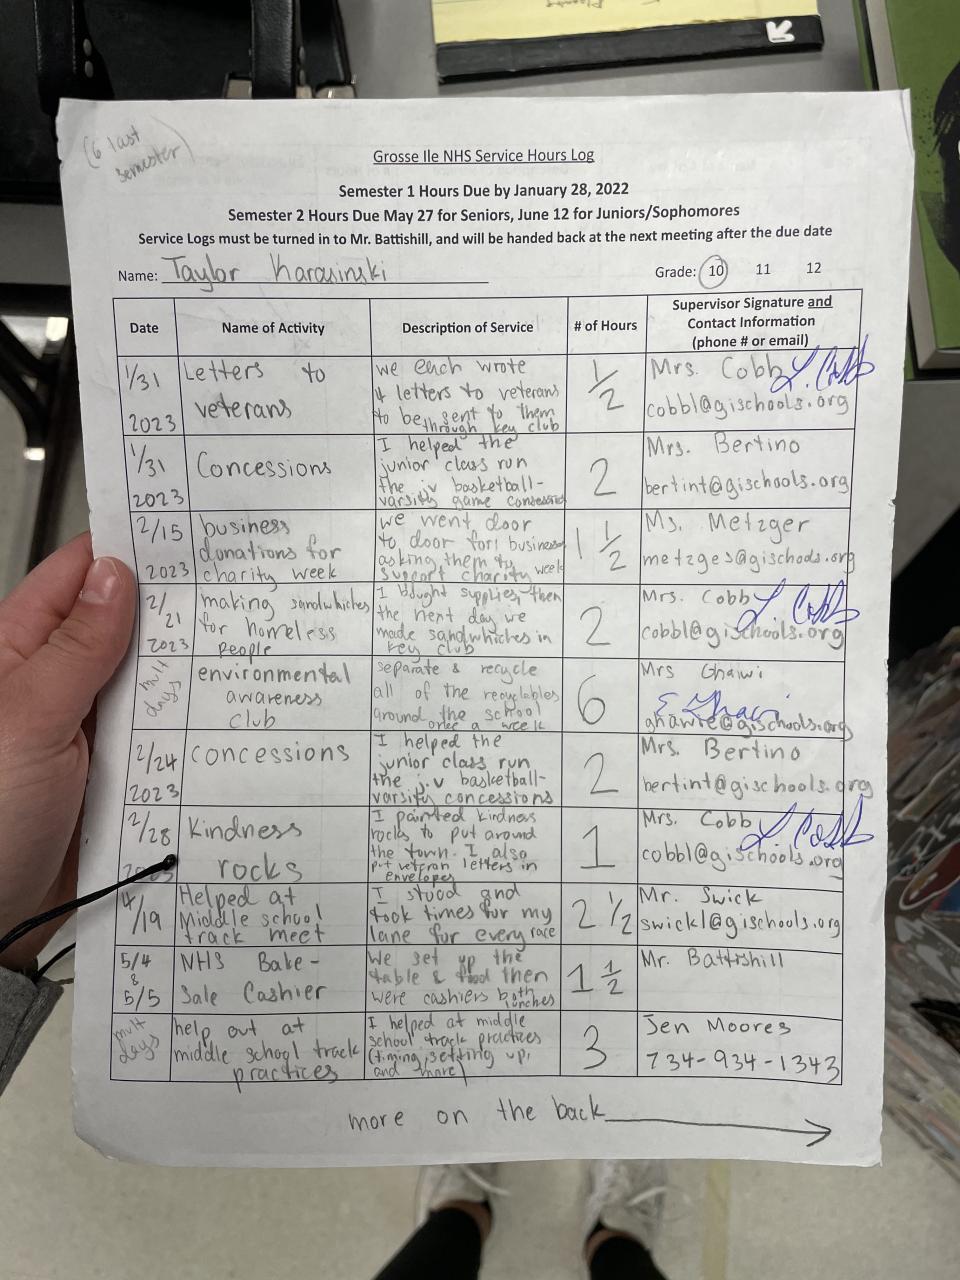 (6 last
semester)
Grosse Ile NHS Service Hours Log
Semester 1 Hours Due by January 28, 2022
Semester 2 Hours Due May 27 for Seniors, June 12 for Juniors/Sophomores
Service Logs must be turned in to Mr. Battishill, and will be handed back at the next meeting after the due date
Name: Taylor Karasinski
Grade: 10 11 12
Date
Name of Activity
Description of Service
# of Hours
Supervisor Signature and
Contact Information
(phone # or email)
1/31
2023
Letters to
veterans
we each wrote
4 letters to veterans
to be sent to them
through key club
1/2
Mrs. Cobb L. Cobb
cobbl@gischools.org
1/31
2023
Concessions
I helped the
junior class run
the jv basketball-
varsity game
2
Mrs. Bertino
bertint@gischools.org
2/15
2023
business
donations for
charity week
we went door
to door for
asking them to
support charity week
1 1/2
Ms. Metzger
metzges@gischools.org
2/21
2023
making sandwhiches
for homeless
people
I bought supplies, then
the next day we
made sandwhiches in
key club
2
Mrs. Cobb L. Cobb
cobbl@gischools.org
mult
days
environmental
awareness
club
separate & recycle
all of the recyclables
around the school
once a week
6
Mrs Ghawi
ghawie@gischools.org
2/24
2023
concessions
I helped the
junior class run
the j.v basketball-
varsity concessions
2
Mrs. Bertino
bertint@gischools.org
2/28
2023
Kindness
rocks
I painted kindness
rocks to put around
the town. I also
put vetran letters in
envelopes
1
Mrs. Cobb L. Cobb
cobbl@gischools.org
4/19
Helped at
Middle school
track meet
I stood and
took times for my
lane for every race
2 1/2
Mr. Swick
swickl@gischools.org
5/4
&
5/5
NHS Bake-
Sale Cashier
We set up the
table & food then
were cashiers both
lunches
1 1/2
Mr. Battishill
mult
days
help out at
middle school track
practices
I helped at middle
school track practices
(timing, setting up,
and more)
3
Jen Moores
734-934-1343
more on the back